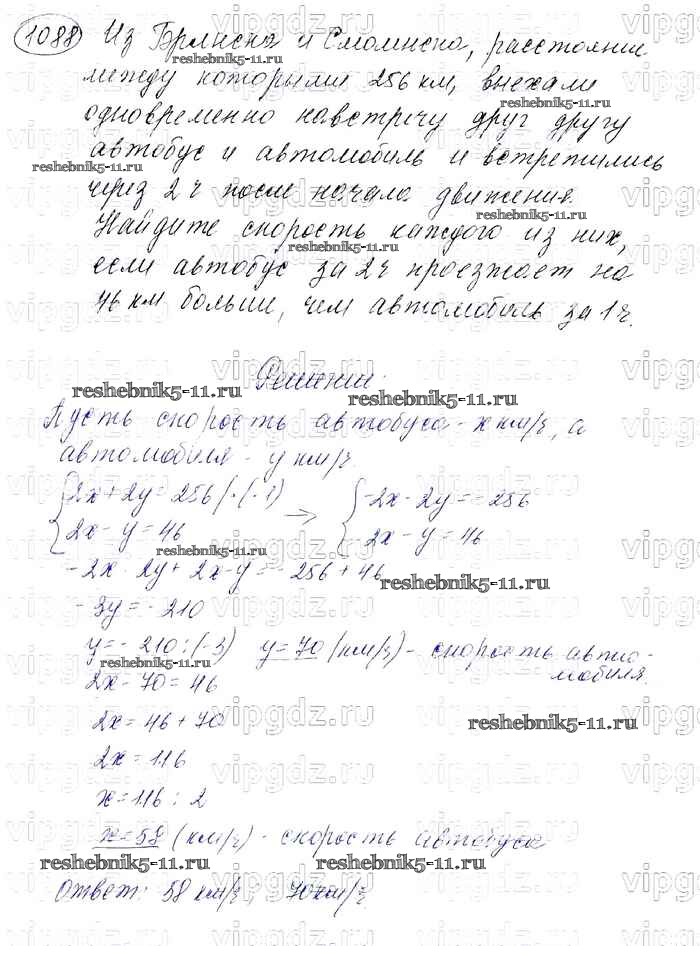 1088 Из Брянска и Смоленска, расстояние
между которыми 256 км, выехали
одновременно навстречу друг другу
автобус и автомобиль и встретились
через 2 ч после начала движения.
Найдите скорость каждого из них,
если автобус за 2 ч проезжает на
46 км больше, чем автомобиль за 1 ч.
Решение.
Пусть скорость автобуса - x км/ч, а
автомобиля - y км/ч.
{2x + 2y = 256 | · (-1) → {-2x - 2y = -256
{2x - y = 46 {2x - y = 46
-2x - 2y + 2x - y = -256 + 46
-3y = -210
y = -210 : (-3) y = 70 (км/ч) - скорость авто-
мобиля.
2x - 70 = 46
2x = 46 + 70
2x = 116
x = 116 : 2
x = 58 (км/ч) - скорость автобуса
Ответ: 58 км/ч; 70 км/ч
reshebnik5-11.ru
vipgdz.ru